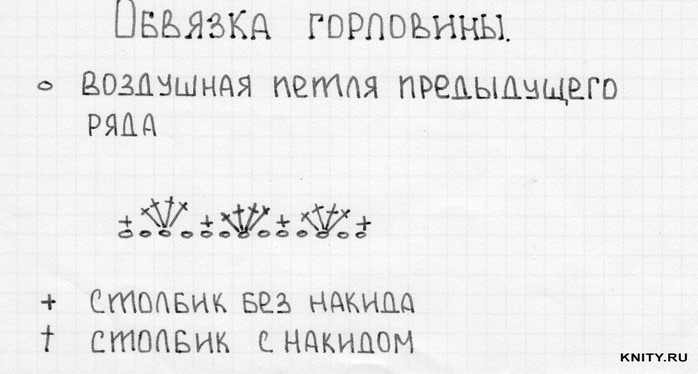 Обвязка горловины.
o воздушная петля предыдущего
ряда
+ столбик без накида
† столбик с накидом
KNITY.RU